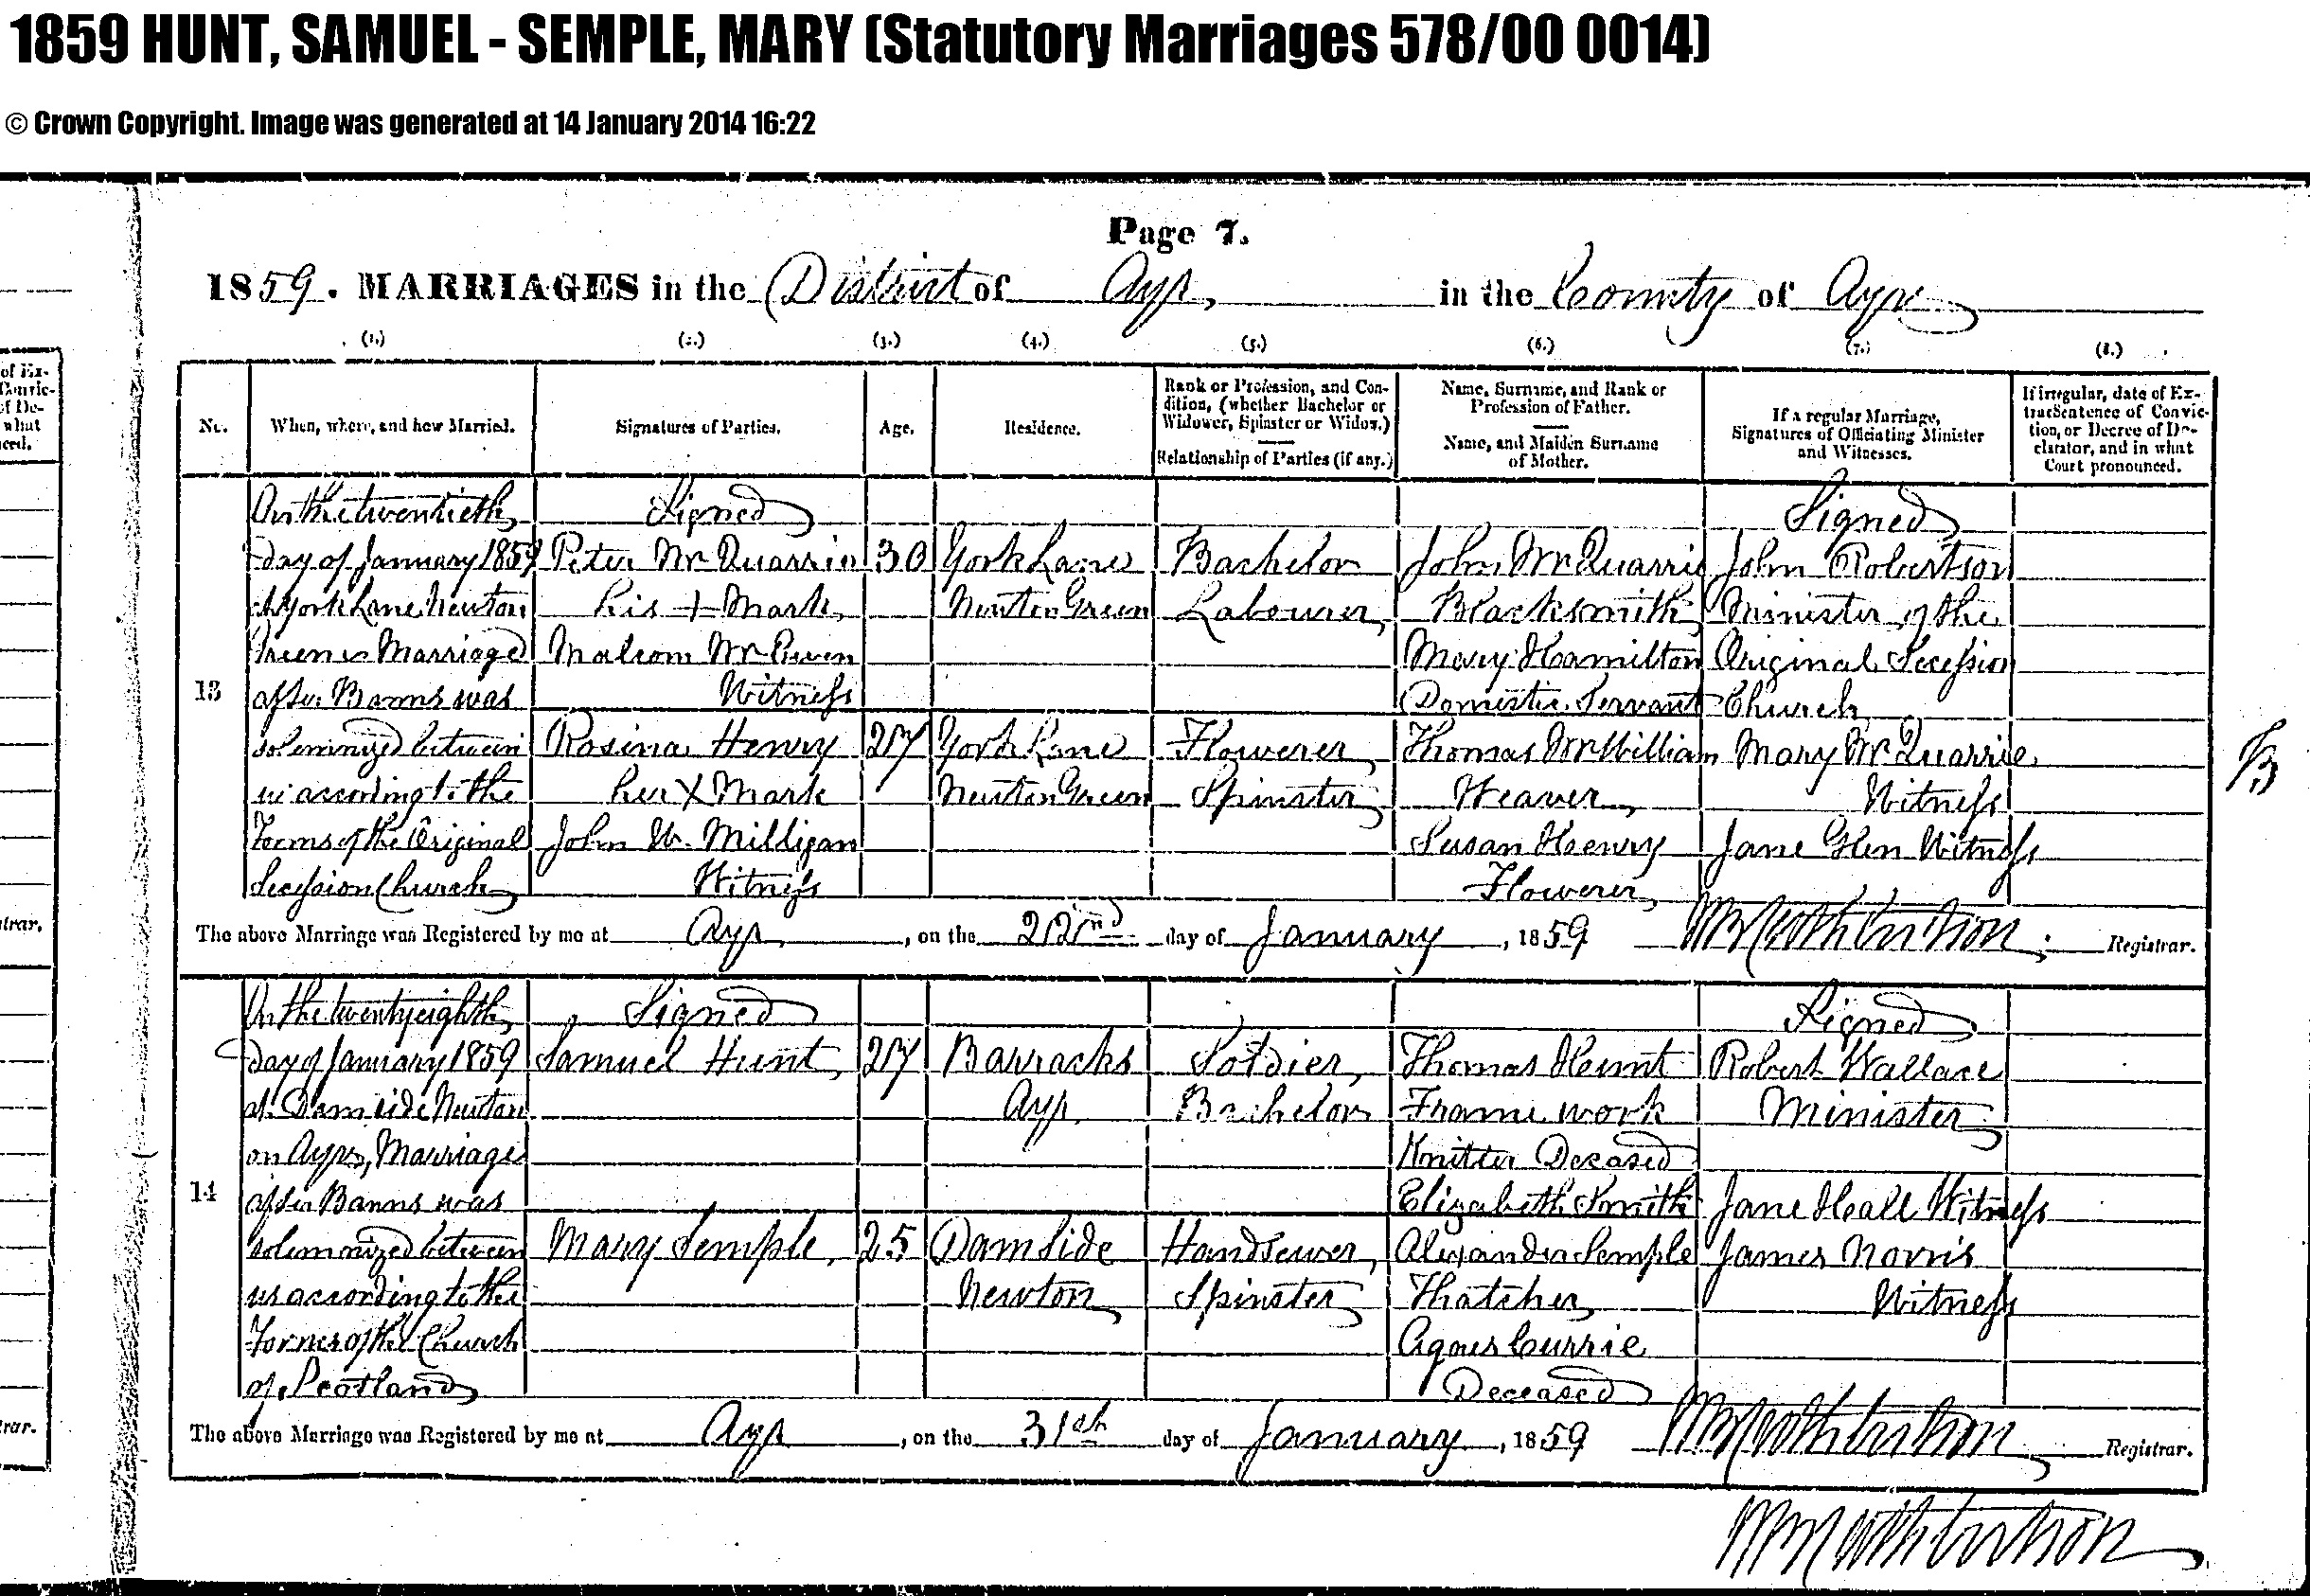 1859 HUNT, SAMUEL - SEMPLE, MARY (Statutory Marriages 578/00 0014)
© Crown Copyright. Image was generated at 14 January 2014 16:22
Page 7.
1859. MARRIAGES in the District of Ayr, in the County of Ayr
(1.) (2.) (3.) (4.) (5.) (6.) (7.) (8.)
No.
When, where, and how Married.
Signatures of Parties.
Age.
Residence.
Rank or Profession, and Con-
dition, (whether Bachelor or
Widower, Spinster or Widow.)
Relationship of Parties (if any.)
Name, Surname, and Rank or
Profession of Father.
Name, and Maiden Surname
of Mother.
If a regular Marriage,
Signatures of Officiating Minister
and Witnesses.
If irregular, date of Ex-
tract Sentence of Convic-
tion, or Decree of De-
clarator, and in what
Court pronounced.
13
On the twentieth
day of January 1859
at York Lane Newton
Green Marriage
after Banns was
solemnized between
us according to the
Forms of the Original
Secession Church
Signed
Peter McQuarrie
his + Mark
Malcom McEwen
Witness
Rosina Henry
her X Mark
John W. Milligan
Witness
30
27
York Lane
Newton Green
York Lane
Newton Green
Bachelor
Labourer,
Flowerer,
Spinster
John McQuarrie
Blacksmith
Mary Hamilton
Domestic Servant
Thomas McWilliam
Weaver,
Susan Henry
Flowerer,
Signed
John Robertson
Minister of the
Original Secession
Church
Mary McQuarrie
Witness
Jane Glen Witness
B
The above Marriage was Registered by me at Ayr, on the 22nd day of January, 1859 Registrar.
14
On the twenty eighth
day of January 1859
at Damside Newton
on Ayr, Marriage
after Banns was
solemnized between
us according to the
Forms of the Church
of Scotland
Signed
Samuel Hunt,
Mary Semple,
27
25
Barracks
Ayr
Damside
Newton
Soldier,
Bachelor
Handsewer,
Spinster
Thomas Hunt
Frame work
Knitter Deceased
Elizabeth Smith
Alexander Semple
Thatcher
Agnes Currie
Deceased
Signed
Robert Wallace
Minister
Jane Hall Witness
James Norris
Witness
The above Marriage was Registered by me at Ayr, on the 31st day of January, 1859 Registrar.